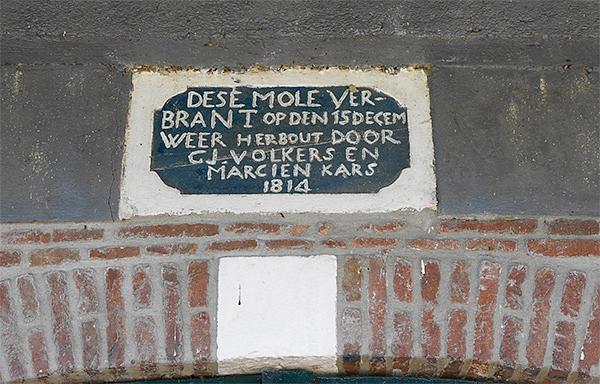 DESE MOLE VER-
BRANT OP DEN 15 DEÇEM
WEER HERBOUT DOOR
C.J. VOLKERS EN
MARCIEN KARS
1814